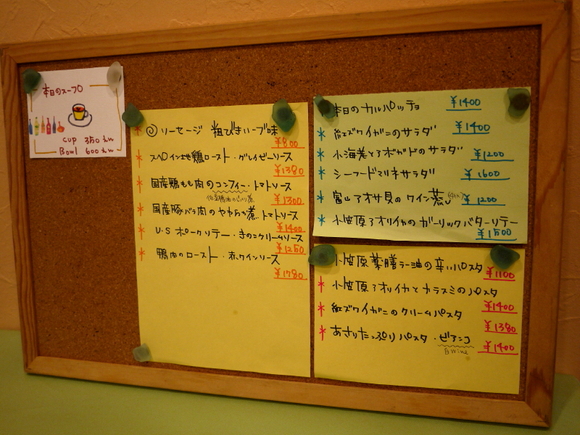 本日のスープ
cup 350えん
Bowl 600えん
ソーセージ 粗びき
¥800
鶏ロースト・グレイビーソース
¥1380
国産鶏もも肉のコンフィー・トマトソース
¥1300
国産豚バラ肉のやわらか煮・トマトソース
¥1400
U.S ポークソテー・きのこクリームソース
¥1250
鴨肉のロースト・赤ワインソース
¥1780
本日のカルパッチョ
¥1400
紅ズワイガニのサラダ
¥1400
小海老とアボガドのサラダ
¥1200
シーフードマリネサラダ
¥1600
アサリのワイン蒸し
¥1200
小笠原アオリイカのガーリックバターソテー
¥1500
小笠原薬膳ラー油の辛いパスタ
¥1100
小笠原アオリイカとカラスミのパスタ
¥1400
紅ズワイガニのクリームパスタ
¥1380
あさりたっぷりパスタ・ビアンコ
¥1400